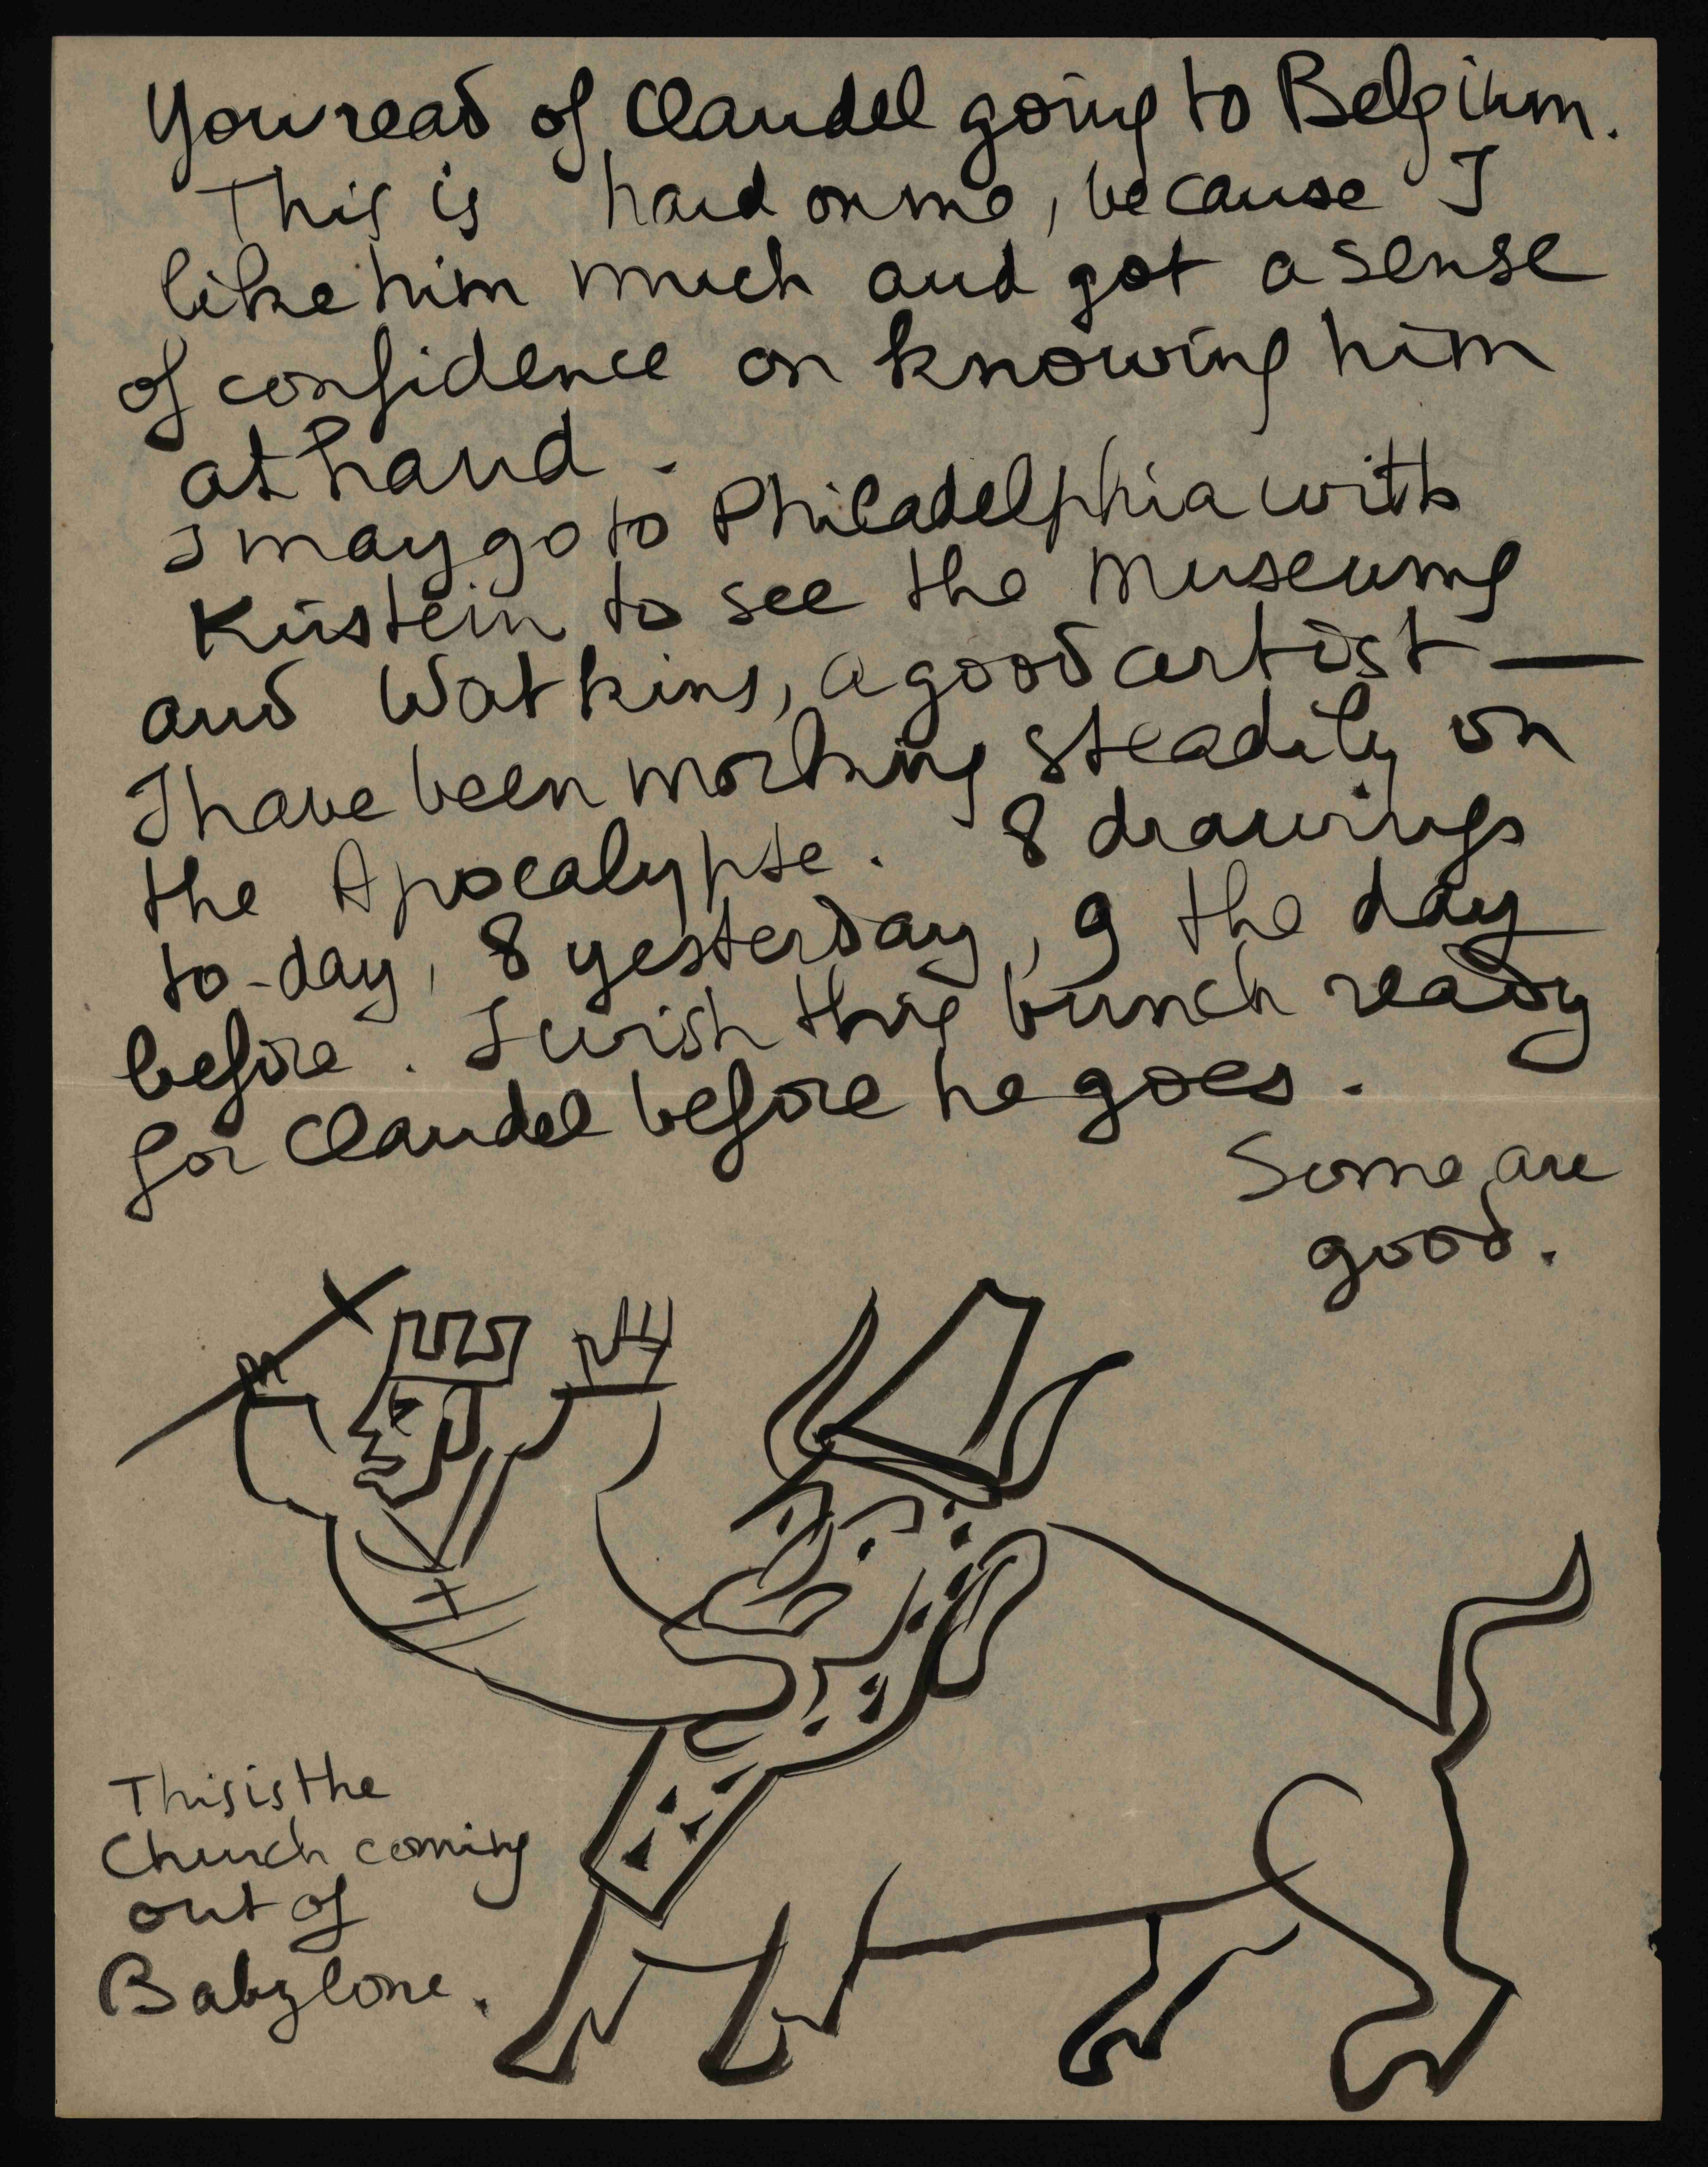 You read of Claudel going to Belgium.
This is hard on me, because I
like him much and got a sense
of confidence on knowing him
at hand.
I may go to Philadelphia with
Kirstein to see the museums
and Watkins, a good artist —
I have been working steadily on
the Apocalypse. 8 drawings
to-day, 8 yesterday, 9 the day
before. I wish this bunch ready
for Claudel before he goes.
Some are
good.
This is the
Church coming
out of
Babylone.